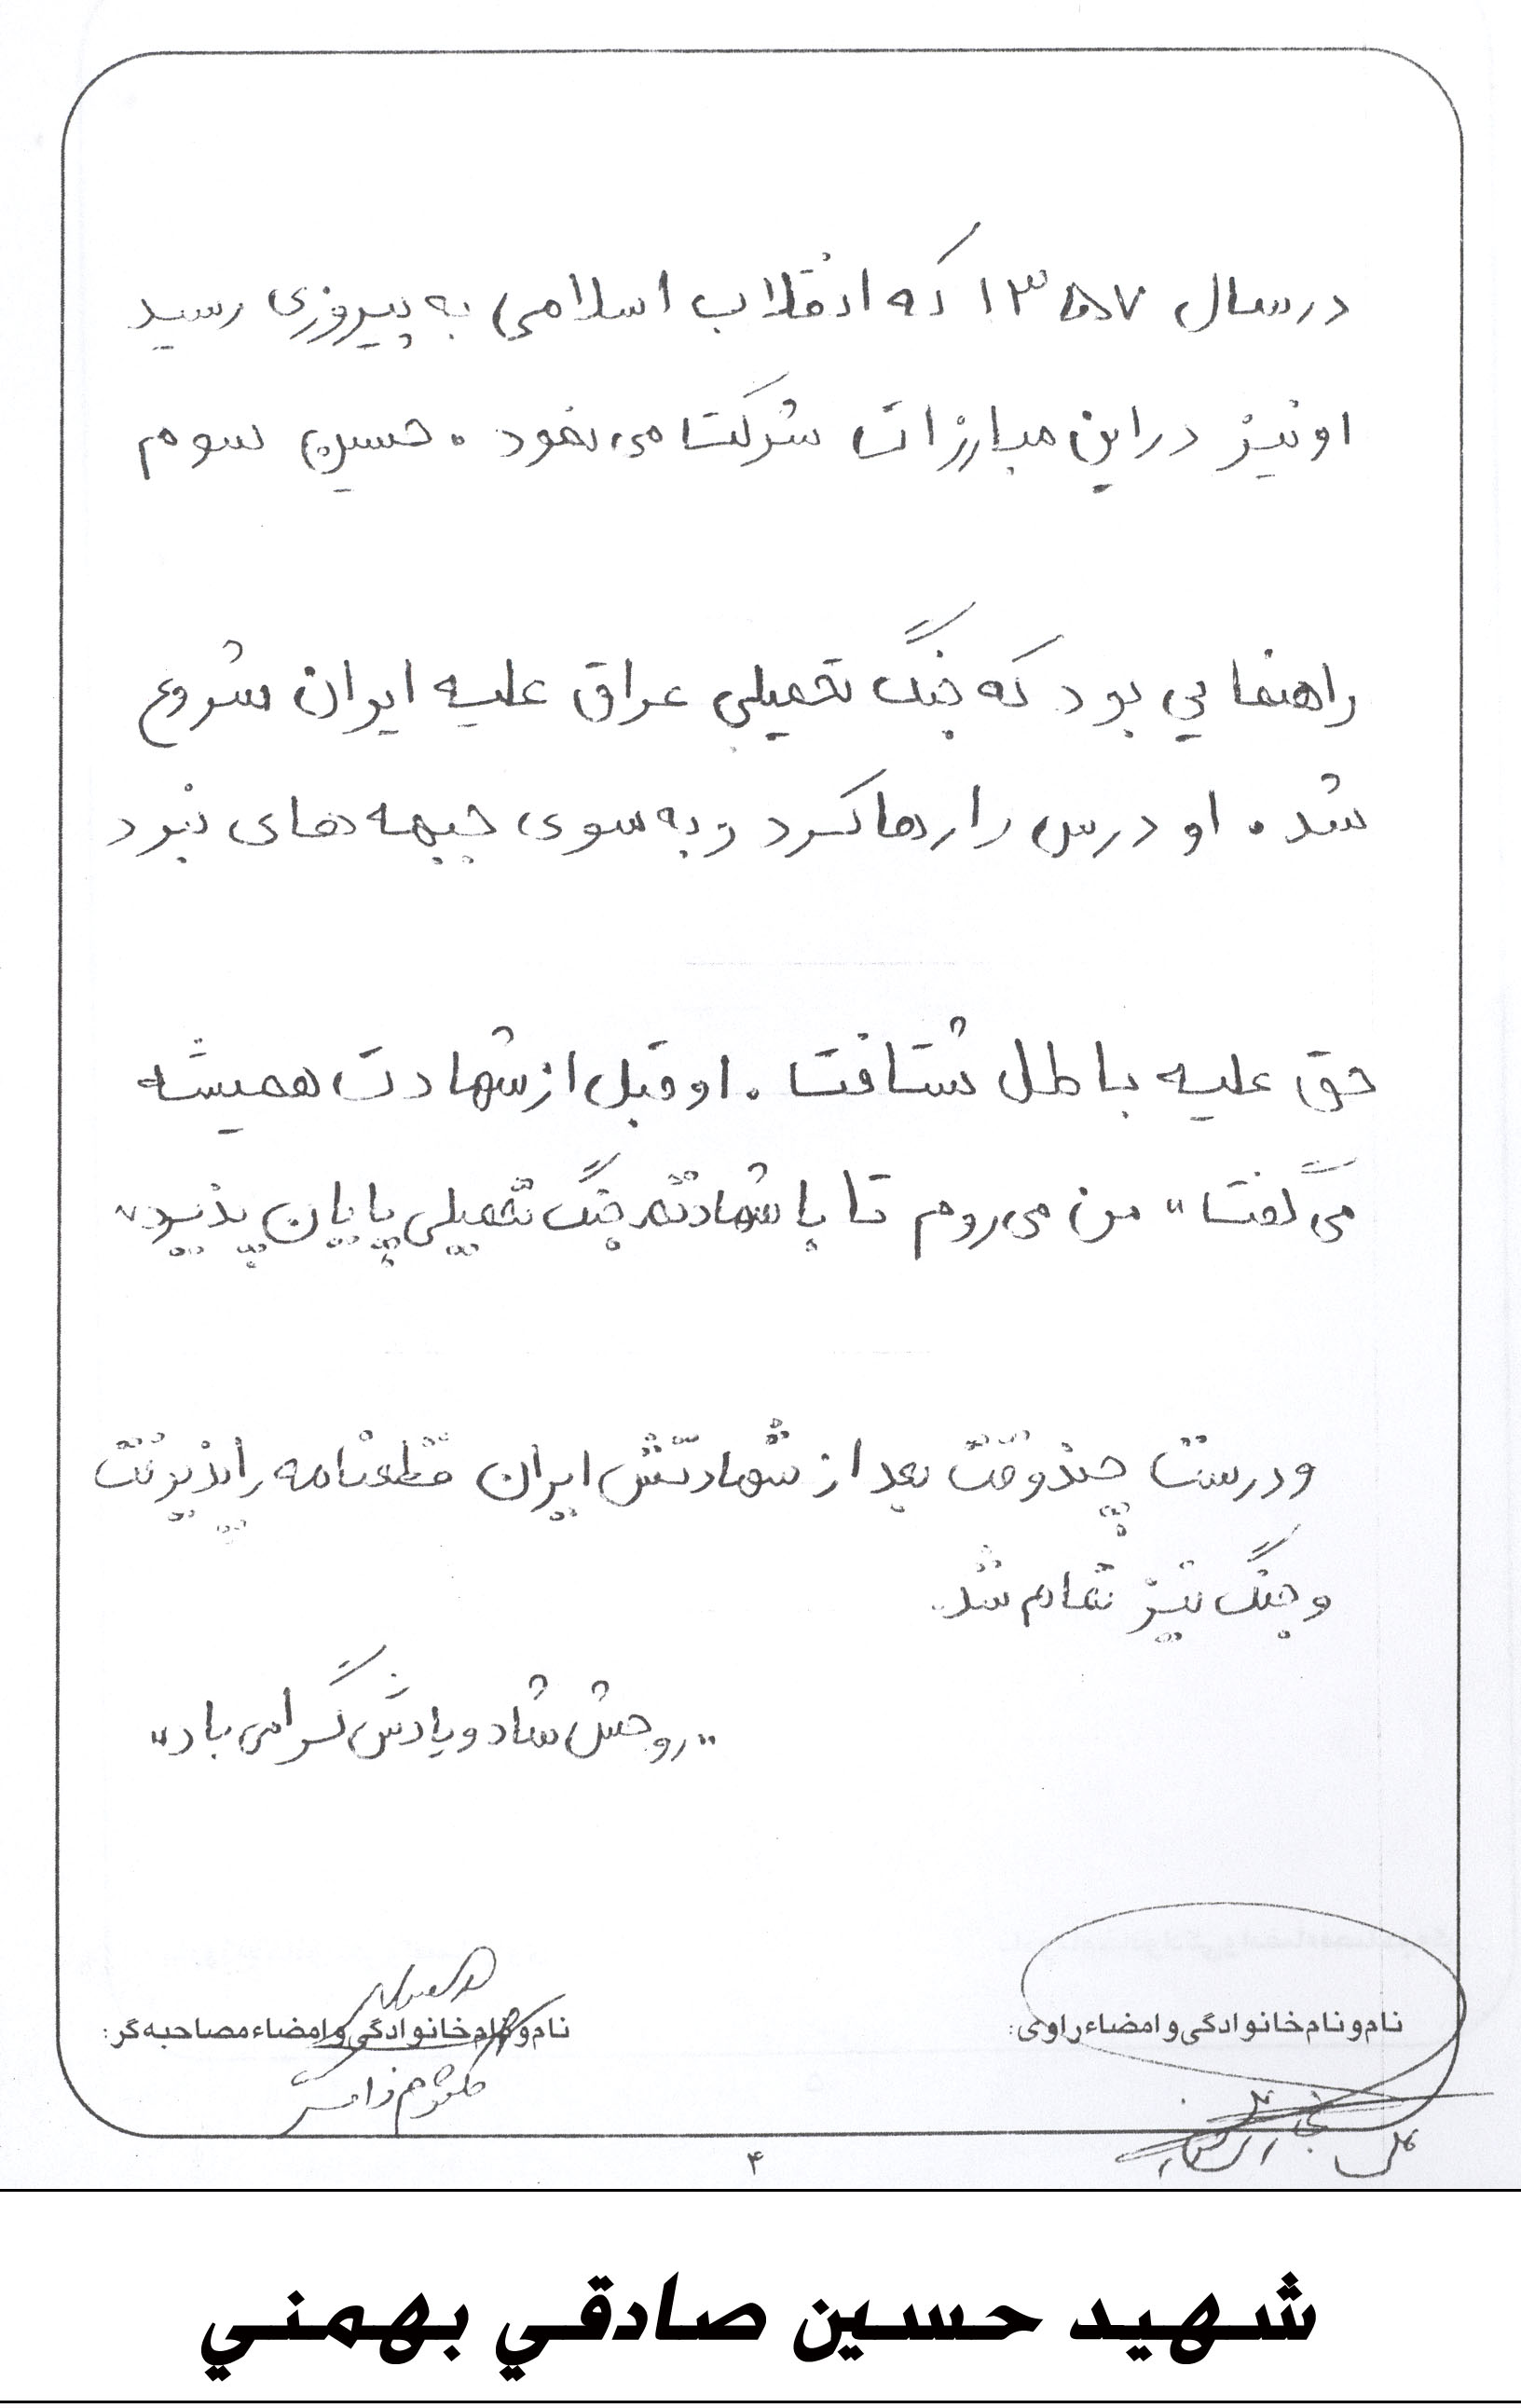 در سال ۱۳۵۷ که انقلاب اسلامی به پیروزی رسید
او نیز در این مبارزات شرکت می نمود . حسین سوم
راهنمایی بود که جنگ تحمیلی عراق علیه ایران شروع
شد . او درس را رها کرد و به سوی جبهه های نبرد
حق علیه باطل شتافت . او قبل از شهادت همیشه
می گفت " من می روم تا با شهادتم جنگ تحمیلی پایان پذیرد "
و درست چند وقت بعد از شهادتش ایران قطعنامه را پذیرفت
و جنگ نیز تمام شد.
" روحش شاد و یادش گرامی باد "
نام و نام خانوادگی و امضاء راوی:
نام و نام خانوادگی و امضاء مصاحبه گر:
۴
شهيد حسين صادقي بهمني